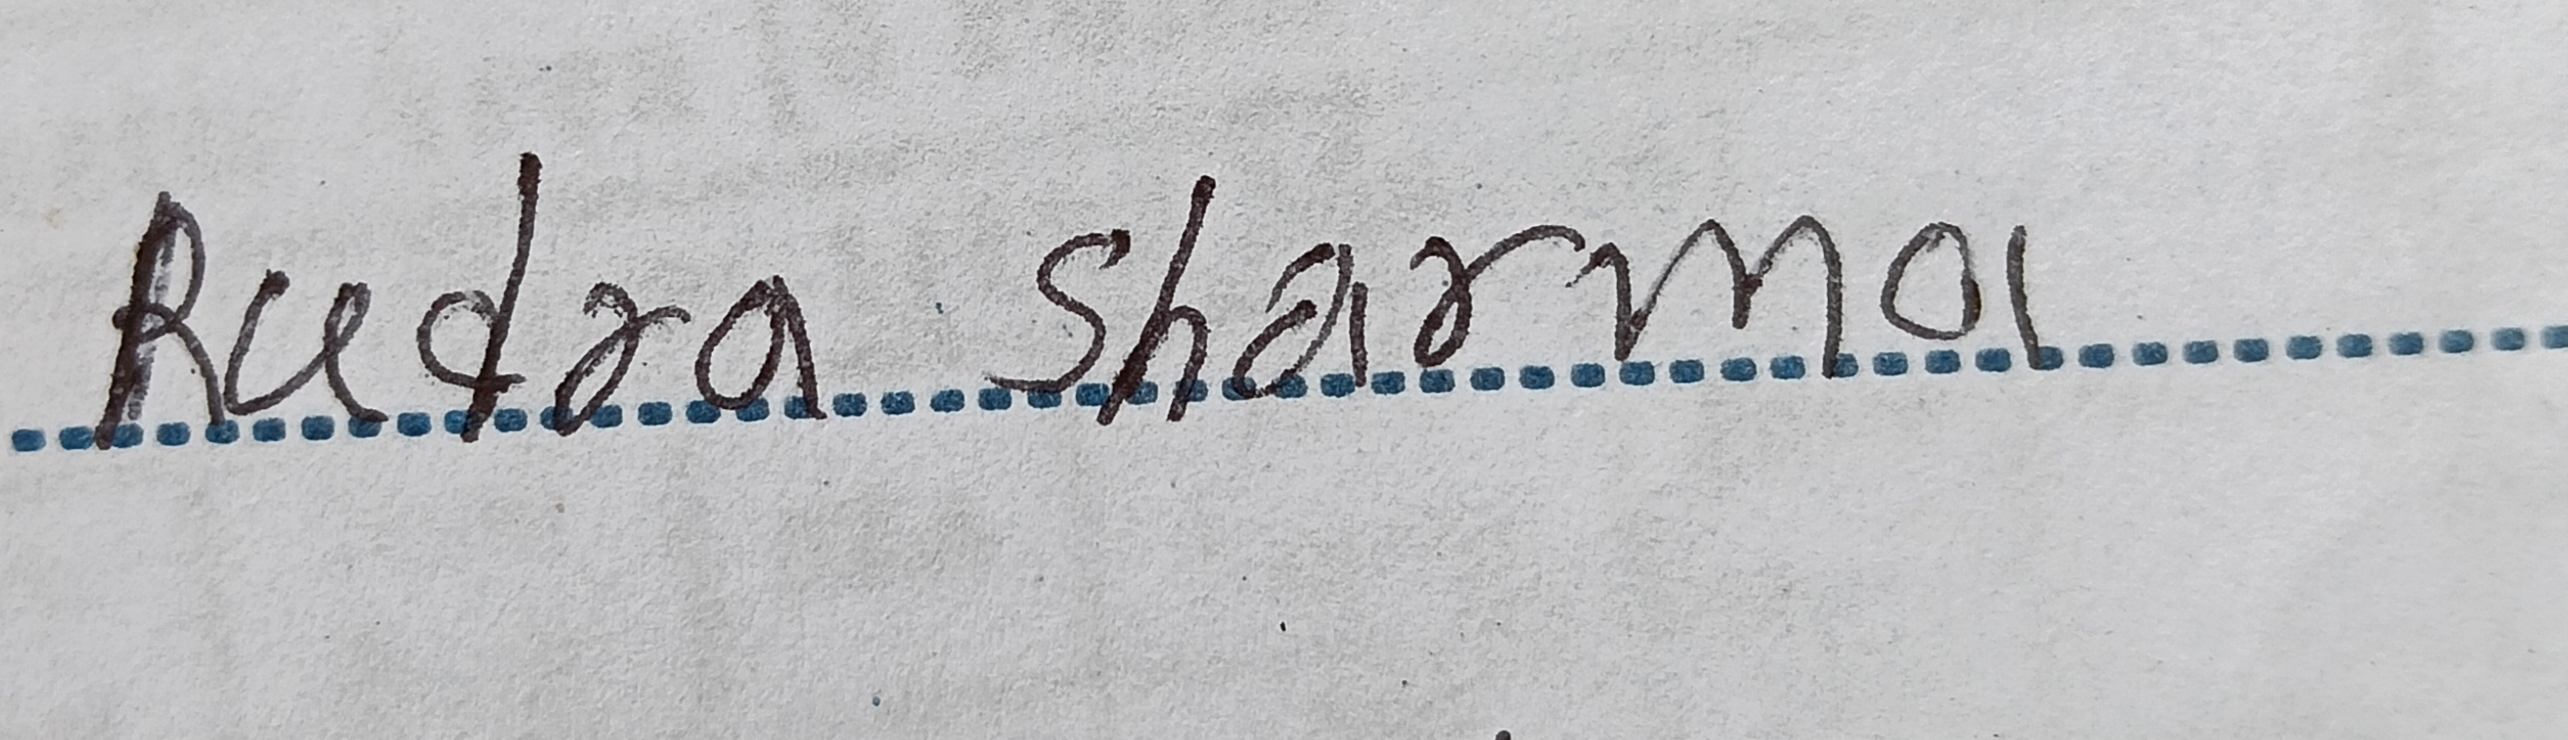 Rudra Sharma